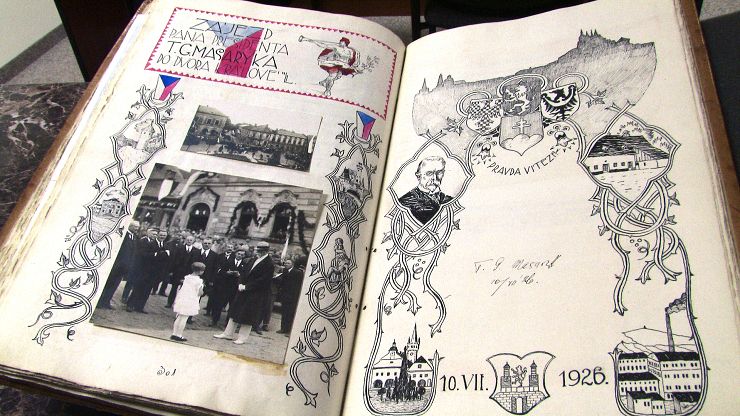 ZÁJEZD
PANA PRESIDENTA
T.G. MASARYKA
DO DVORA KRÁLOVÉ n/L.
PRAVDA VÍTĚZÍ
T G Masaryk
10. VII. 1926.